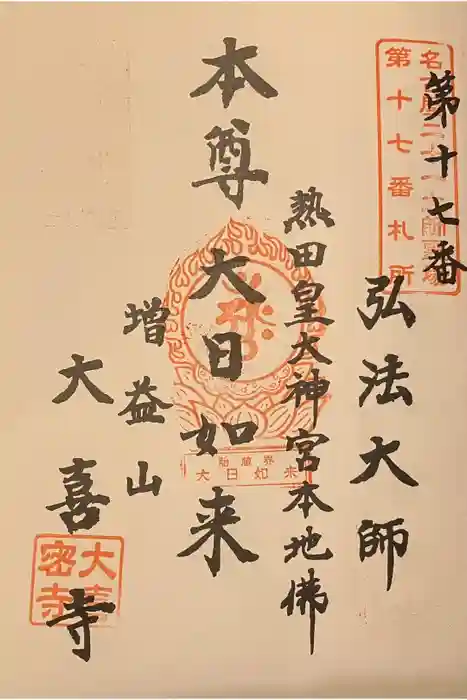 第十七番
弘法大師
熱田皇大神宮本地佛
本尊大日如来
増益山
大喜寺
第十七番札所
胎蔵界
大日如来
大喜
密寺